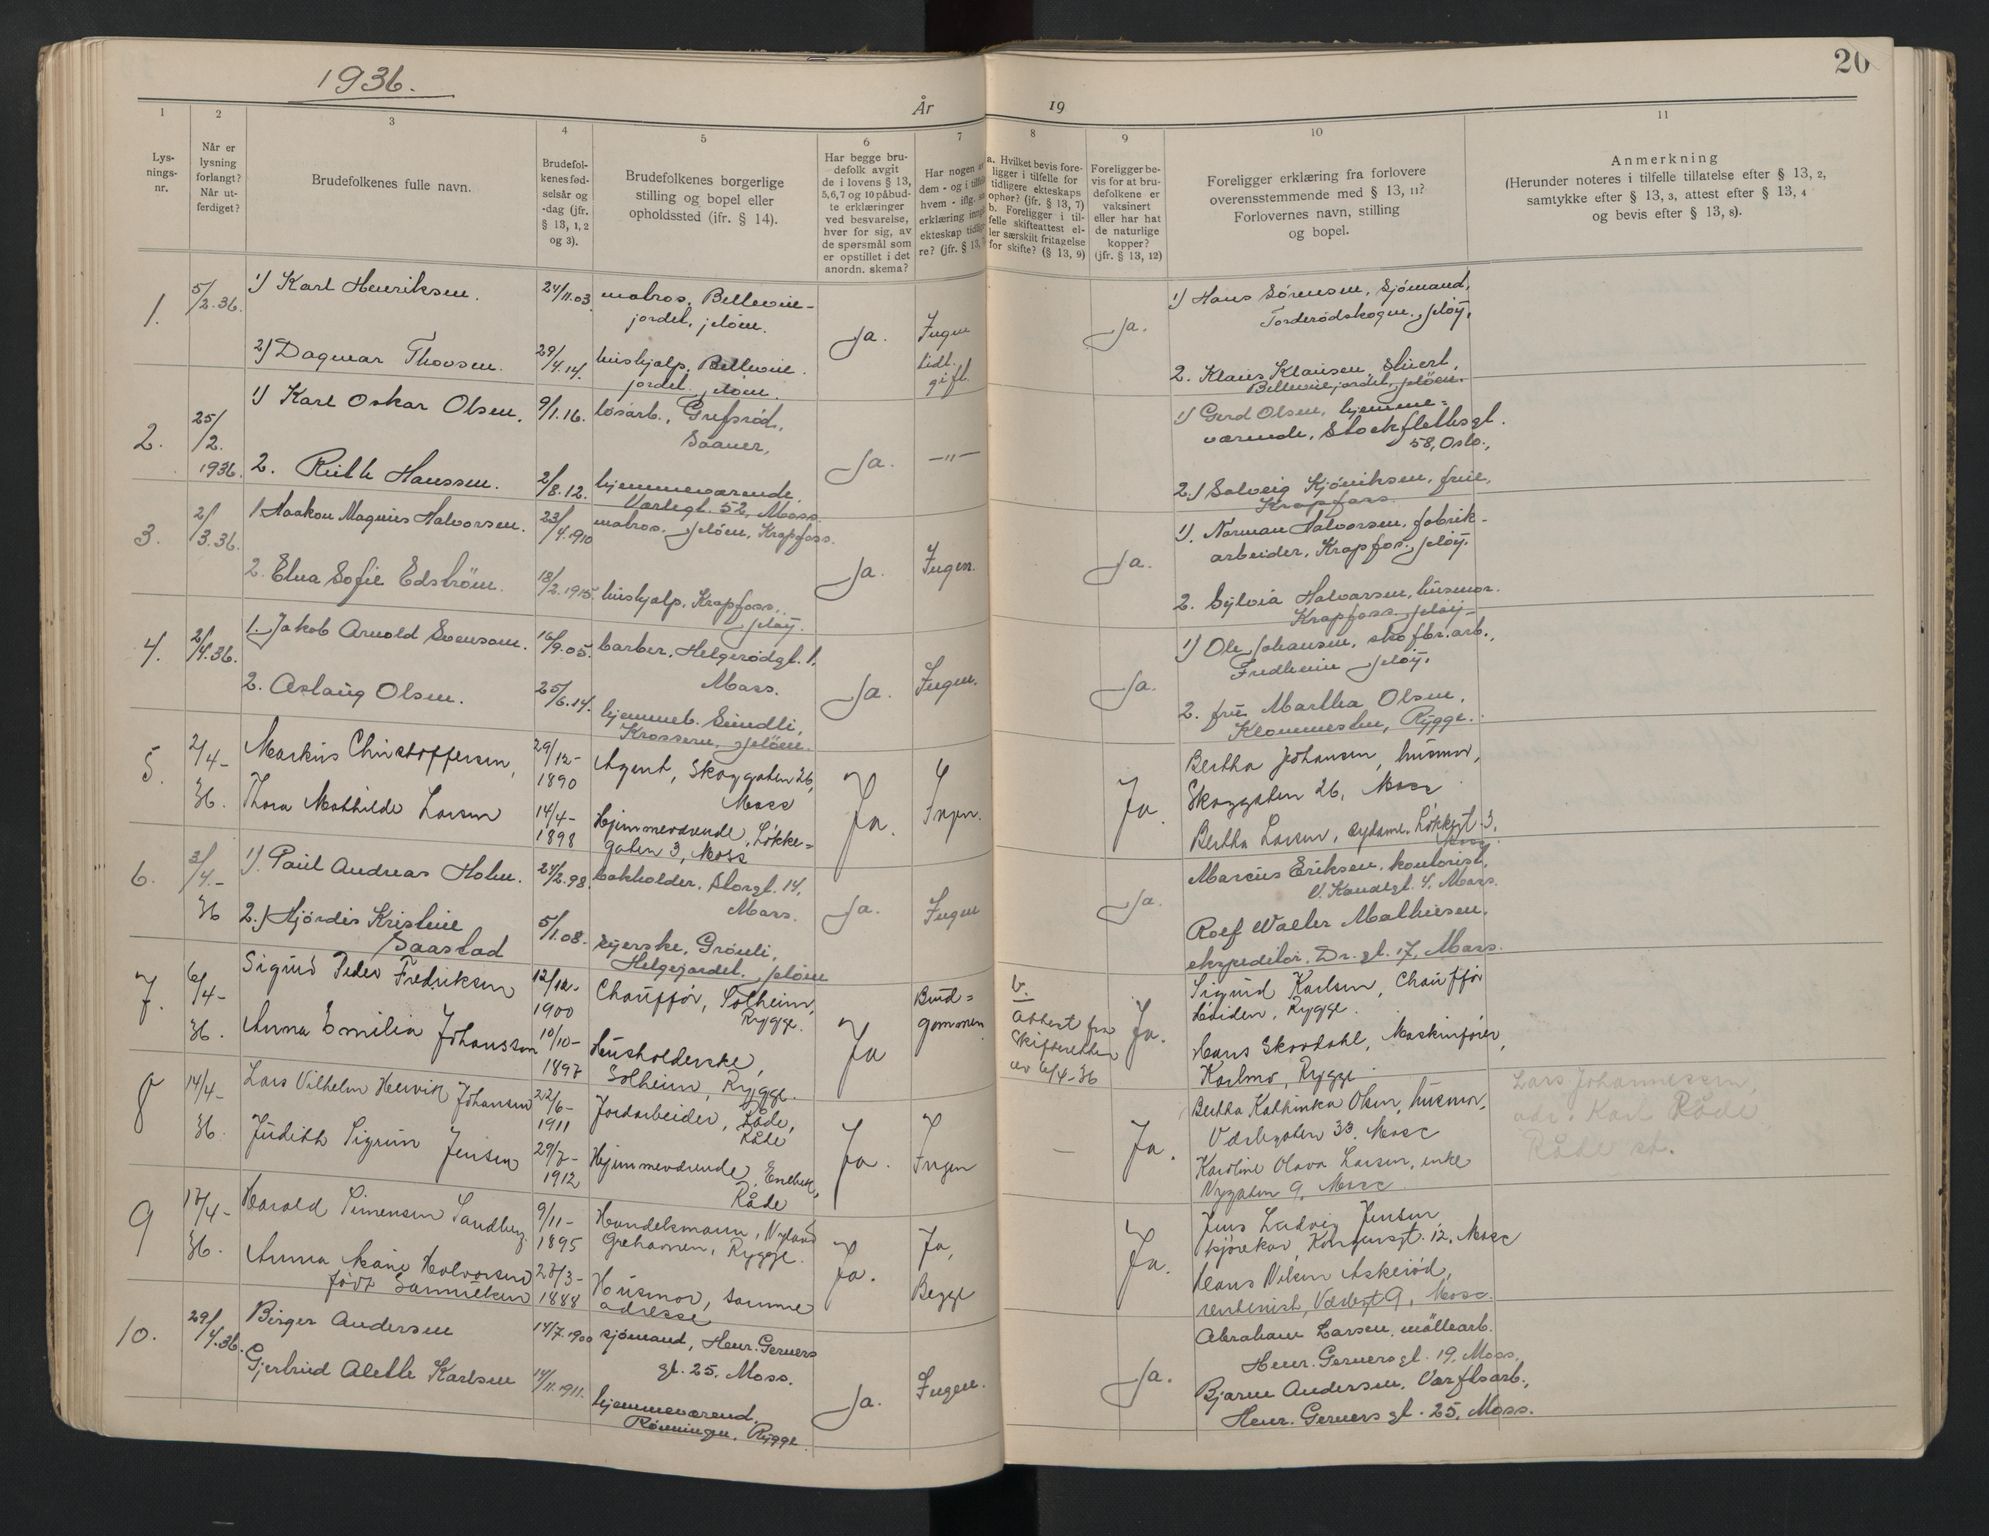 1936.
20
År
19
1
2
3
4
5
6
7
8
9
10
11
Lys-
nings-
nr.
Når er
lysning
forlangt?
Når ut-
ferdiget?
Brudefolkenes fulle navn.
Brudefol-
kenes fød-
selsår og
-dag (jfr.
§ 13, 1, 2
og 3).
Brudefolkenes borgerlige
stilling og bopel eller
opholdssted (jfr. § 14).
Har begge bru-
defolk avgit
de i lovens § 13,
5, 6, 7 og 10 påbud-
te erklæringer
ved besvarelse,
hver for sig, av
de spørsmål som
er opstillet i det
anordn. skema?
Har nogen av
dem - og i tilfelle
hvem - iflg.
erklæring inngått
ekteskap tidlige-
re? (jfr. § 13,
a. Hvilket bevis fore-
ligger i tilfelle for
tidligere ekteskaps
ophør? (jfr. § 13, 7)
b. Foreligger i til-
felle skifteattest el-
ler særskilt fritagelse
for skifte? (§ 13, 9)
Foreligger be-
vis for at bru-
defolkene er
vaksinert
eller har hat
de naturlige
kopper?
(jfr. § 13, 12)
Foreligger erklæring fra forlovere
overensstemmende med § 13, 11?
Forlovernes navn, stilling
og bopel.
Anmerkning
(Herunder noteres i tilfelle tillatelse efter § 13, 2,
samtykke efter § 13, 3, attest efter § 13, 4
og bevis efter § 13, 8).
1.
5/2.36.
1) Karl Henriksen.
24/11.03.
matros, Bellevue-
jordet, Jeløen.
2) Dagmar Thovsen.
29/4.14.
hushjelp, Bellevue-
jordet. Jeløen.
Ja.
Ingen
tidl.
gift.
Ja.
1) Hans Sørensen, Sjømand,
Torderødskogen. Jeløy,
2. Klaus Klausen, Stuert,
Bellevuejordet, Jeløen.
2.
25/2.
1936.
1) Karl Oskar Olsen.
9/1.16.
løsarb., Grefsrød,
Saaner,
2. Ruth Hanssen.
2/8.12.
hjemmeværende,
Varlegt. 52, Moss.
Ja.
-"-
1) Gerd Olsen, hjemme-
værende, Stockflethsgt.
58, Oslo,
2.) Solveig Kjøniksen, frue,
Krapfoss.
3.
2/3.36.
1. Haakon Magnus Halvorsen.
23/4.1910
matros. Jeløen, Krapfoss.
2. Elna Sofie Edstrøm.
18/2.1915.
hushjelp, Krapfoss,
Jeløy.
Ja.
Ingen.
Ja.
1). Norman Halvorsen, fabrik-
arbeider, Krapfos. Jeløy.
2. Sylvia Halvorsen, husmor.
Krapfoss Jeløy-
4.
2/4.36.
1. Jakob Arnold Svensson.
16/9.05.
barber, Helgerødgt. 1,
Moss.
2. Aslaug Olsen.
25/6.14.
hjemmeb. Sundli,
Krossern, Jeløen.
Ja.
Ingen.
Ja.
1) Ole Johansen, skofbr.arb.,
Fredheim Jeløy,
2. frue Martha Olsen,
Klommesten, Rygge.
5.
2/4-
36.
Markus Christoffersen,
29/12-
1890
Agent, Skoggaten 26,
Moss
Thora Mathilde Larsen
14/4-
1898
Hjemmeværende, Løkke-
gaten 3, Moss
Ja.
Ingen.
Ja.
Bertha Johansen, husmor,
Skoggaten 26, Moss
Bertha Larsen, sydame. Løkkegt. 3,
Moss
6.
2/4.-
36
1). Paul Andreas Holm.
24/2.98.
bokholder, Storgt. 14,
Moss.
2.) Hjørdis Kristine
Saastad
5/1.08.
syerske, Grønli,
Helgejordet. Jeløen
Ja.
Ingen
Ja.
Marcus Eriksen, kontorist,
V. Kanalgt. 4. Moss.
Rolf Walter Mathiesen,
ekspeditør, Dr. gt. 17, Moss.
7.
6/4-
36.
Sigurd Peder Fredriksen
12/12-
1900
Chauffør, Solheim,
Rygge.
Anna Emilia Johansson
10/10-
1897
Husholderske,
Solheim, Rygge.
Ja
Brud-
gommen
b.
Attest fra
Skifteretten
av 6/4-36
Ja.
Sigurd Karlsen, Chauffør
Høiden, Rygge.
Hans Skovdahl, Maskinfører,
Karlmo, Rygge.
8
14/4-
36.
Lars Vilhelm Hervik Johansen
22/6-
1911
Jordarbeider, Løde,
Råde
Judith Sigrun Jensen
29/7-
1912
Hjemmeværende, Enebek,
Råde
Ja.
Ingen
-
Ja.
Bertha Kathinka Olsen, husmor,
Værlegaten 33. Moss
Karoline Olava Larsen, enke
Nygaten 9, Moss.
Lars Johannessen,
adr. Karl Råde
Råde st.
9
17/4-
36.
Harald Simensen Sandberg
9/11-
1895
Handelsmann, Nyland
Grehaanen, Rygge.
Anna Marie Halvorsen
født Samuelsen
27/3-
1888
Husmor, samme
adresse
Ja.
Ja,
Begge
Ja.
Jens Ludvig Jensen
kjørekar, Kongensgt. 12, Moss
Hans Nilsen Askerød,
rentenist, Værlegt 9, Moss.
10.
29/4.36.
Birger Andersen
14/7.1900
sjømand, Henr. Gerners
gt. 25, Moss.
Gjertrud Alette Karlsen
14/11.1911.
hjemmeværend.
Rønningen, Rygge.
Ja.
Ingen.
Ja.
Abraham Larsen, møllearb.
Henr. Gernersgt. 19, Moss,
Bjarne Andersen, Værftsarb.,
Henr. Gerners gt. 25, Moss.